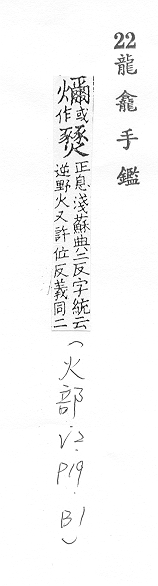 22 龍龕手鑑
或作
燹
正息淺蘇典二反字統云
逆野火又許位反義同二
(火部·V2·P19·B1)